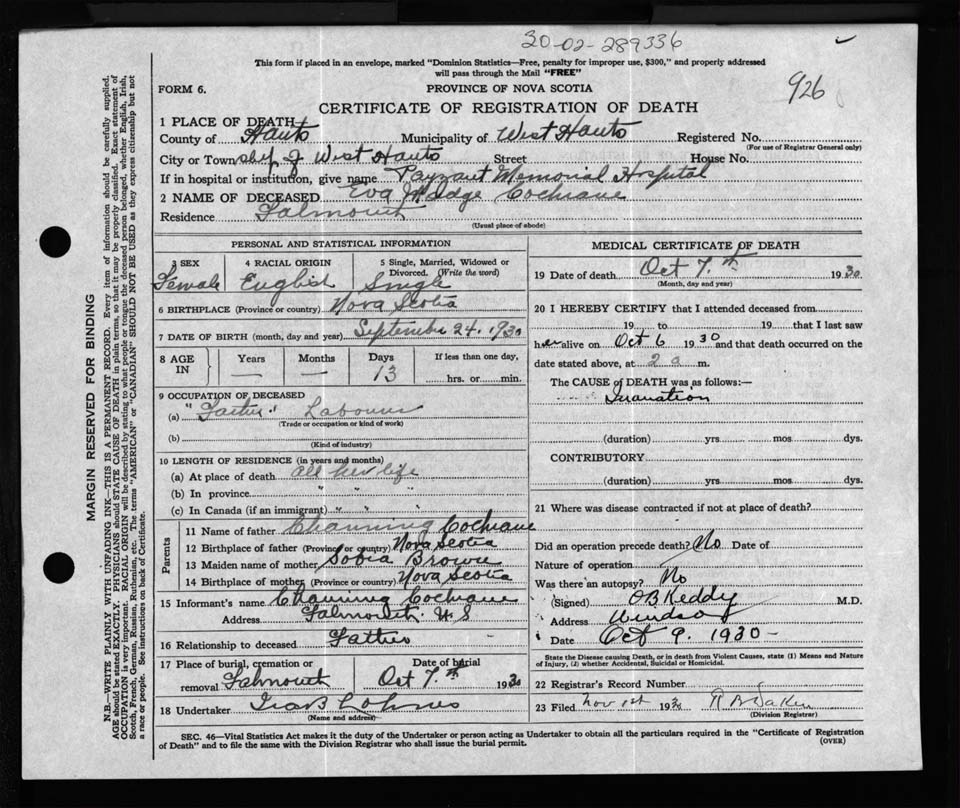 20-02-289336
This form if placed in an envelope, marked "Dominion Statistics—Free, penalty for improper use, $300," and properly addressed
will pass through the Mail "FREE"
926
FORM 6.
PROVINCE OF NOVA SCOTIA
CERTIFICATE OF REGISTRATION OF DEATH
1 PLACE OF DEATH
County of Hants Municipality of West Hants Registered No.
(For use of Registrar General only)
City or Town West Hants Street House No.
If in hospital or institution, give name Payzant Memorial Hospital
2 NAME OF DECEASED Eva Madge Cochrane
Residence Falmouth
(Usual place of abode)
PERSONAL AND STATISTICAL INFORMATION
3 SEX 4 RACIAL ORIGIN 5 Single, Married, Widowed or Divorced. (Write the word)
Female English Single
6 BIRTHPLACE (Province or country) Nova Scotia
7 DATE OF BIRTH (month, day and year) September 24, 1930
8 AGE IN Years Months Days If less than one day,
— — 13 hrs. or min.
9 OCCUPATION OF DECEASED
(a) "Father" Labourer
(Trade or occupation or kind of work)
(b)
(Kind of industry)
10 LENGTH OF RESIDENCE (in years and months)
(a) At place of death all her life
(b) In province " "
(c) In Canada (if an immigrant) " "
Parents
11 Name of father Channing Cochrane
12 Birthplace of father (Province or country) Nova Scotia
13 Maiden name of mother Brown
14 Birthplace of mother (Province or country) Nova Scotia
15 Informant's name Channing Cochrane
Address Falmouth N S
16 Relationship to deceased Father
17 Place of burial, cremation or removal Falmouth
Date of burial Oct 7.th 1930
18 Undertaker
(Name and address)
MEDICAL CERTIFICATE OF DEATH
19 Date of death Oct 7.th 1930
(Month, day and year)
20 I HEREBY CERTIFY that I attended deceased from
19 to 19 that I last saw
her alive on Oct 6 1930 and that death occurred on the
date stated above, at 2 a m.
The CAUSE of DEATH was as follows:—
Inanition
(duration) yrs. mos. dys.
CONTRIBUTORY
(duration) yrs. mos. dys.
21 Where was disease contracted if not at place of death?
Did an operation precede death? No Date of
Nature of operation
Was there an autopsy? No
(Signed) O B Keddy M.D.
Address Windsor
Date Oct 9. 1930 -
State the Disease causing Death, or in death from Violent Causes, state (1) Means and Nature
of Injury, (2) whether Accidental, Suicidal or Homicidal.
22 Registrar's Record Number
23 Filed Nov 1st 19
(Division Registrar)
SEC. 46—Vital Statistics Act makes it the duty of the Undertaker or person acting as Undertaker to obtain all the particulars required in the "Certificate of Registration
of Death" and to file the same with the Division Registrar who shall issue the burial permit. (OVER)
MARGIN RESERVED FOR BINDING
N.B.—WRITE PLAINLY WITH UNFADING INK—THIS IS A PERMANENT RECORD. Every item of information should be carefully supplied.
AGE should be stated EXACTLY. PHYSICIANS should STATE CAUSE OF DEATH in plain terms, so that it may be properly classified. Exact statement of
OCCUPATION is very important. RACIAL ORIGIN will be described by stating to what people or tongue the deceased person belonged, whether English, Irish,
Scotch, French, German, Russian, Ruthenian, etc. The terms "AMERICAN" or "CANADIAN" SHOULD NOT BE USED as they express citizenship but not
a race or people. See instructions on back of Certificate.